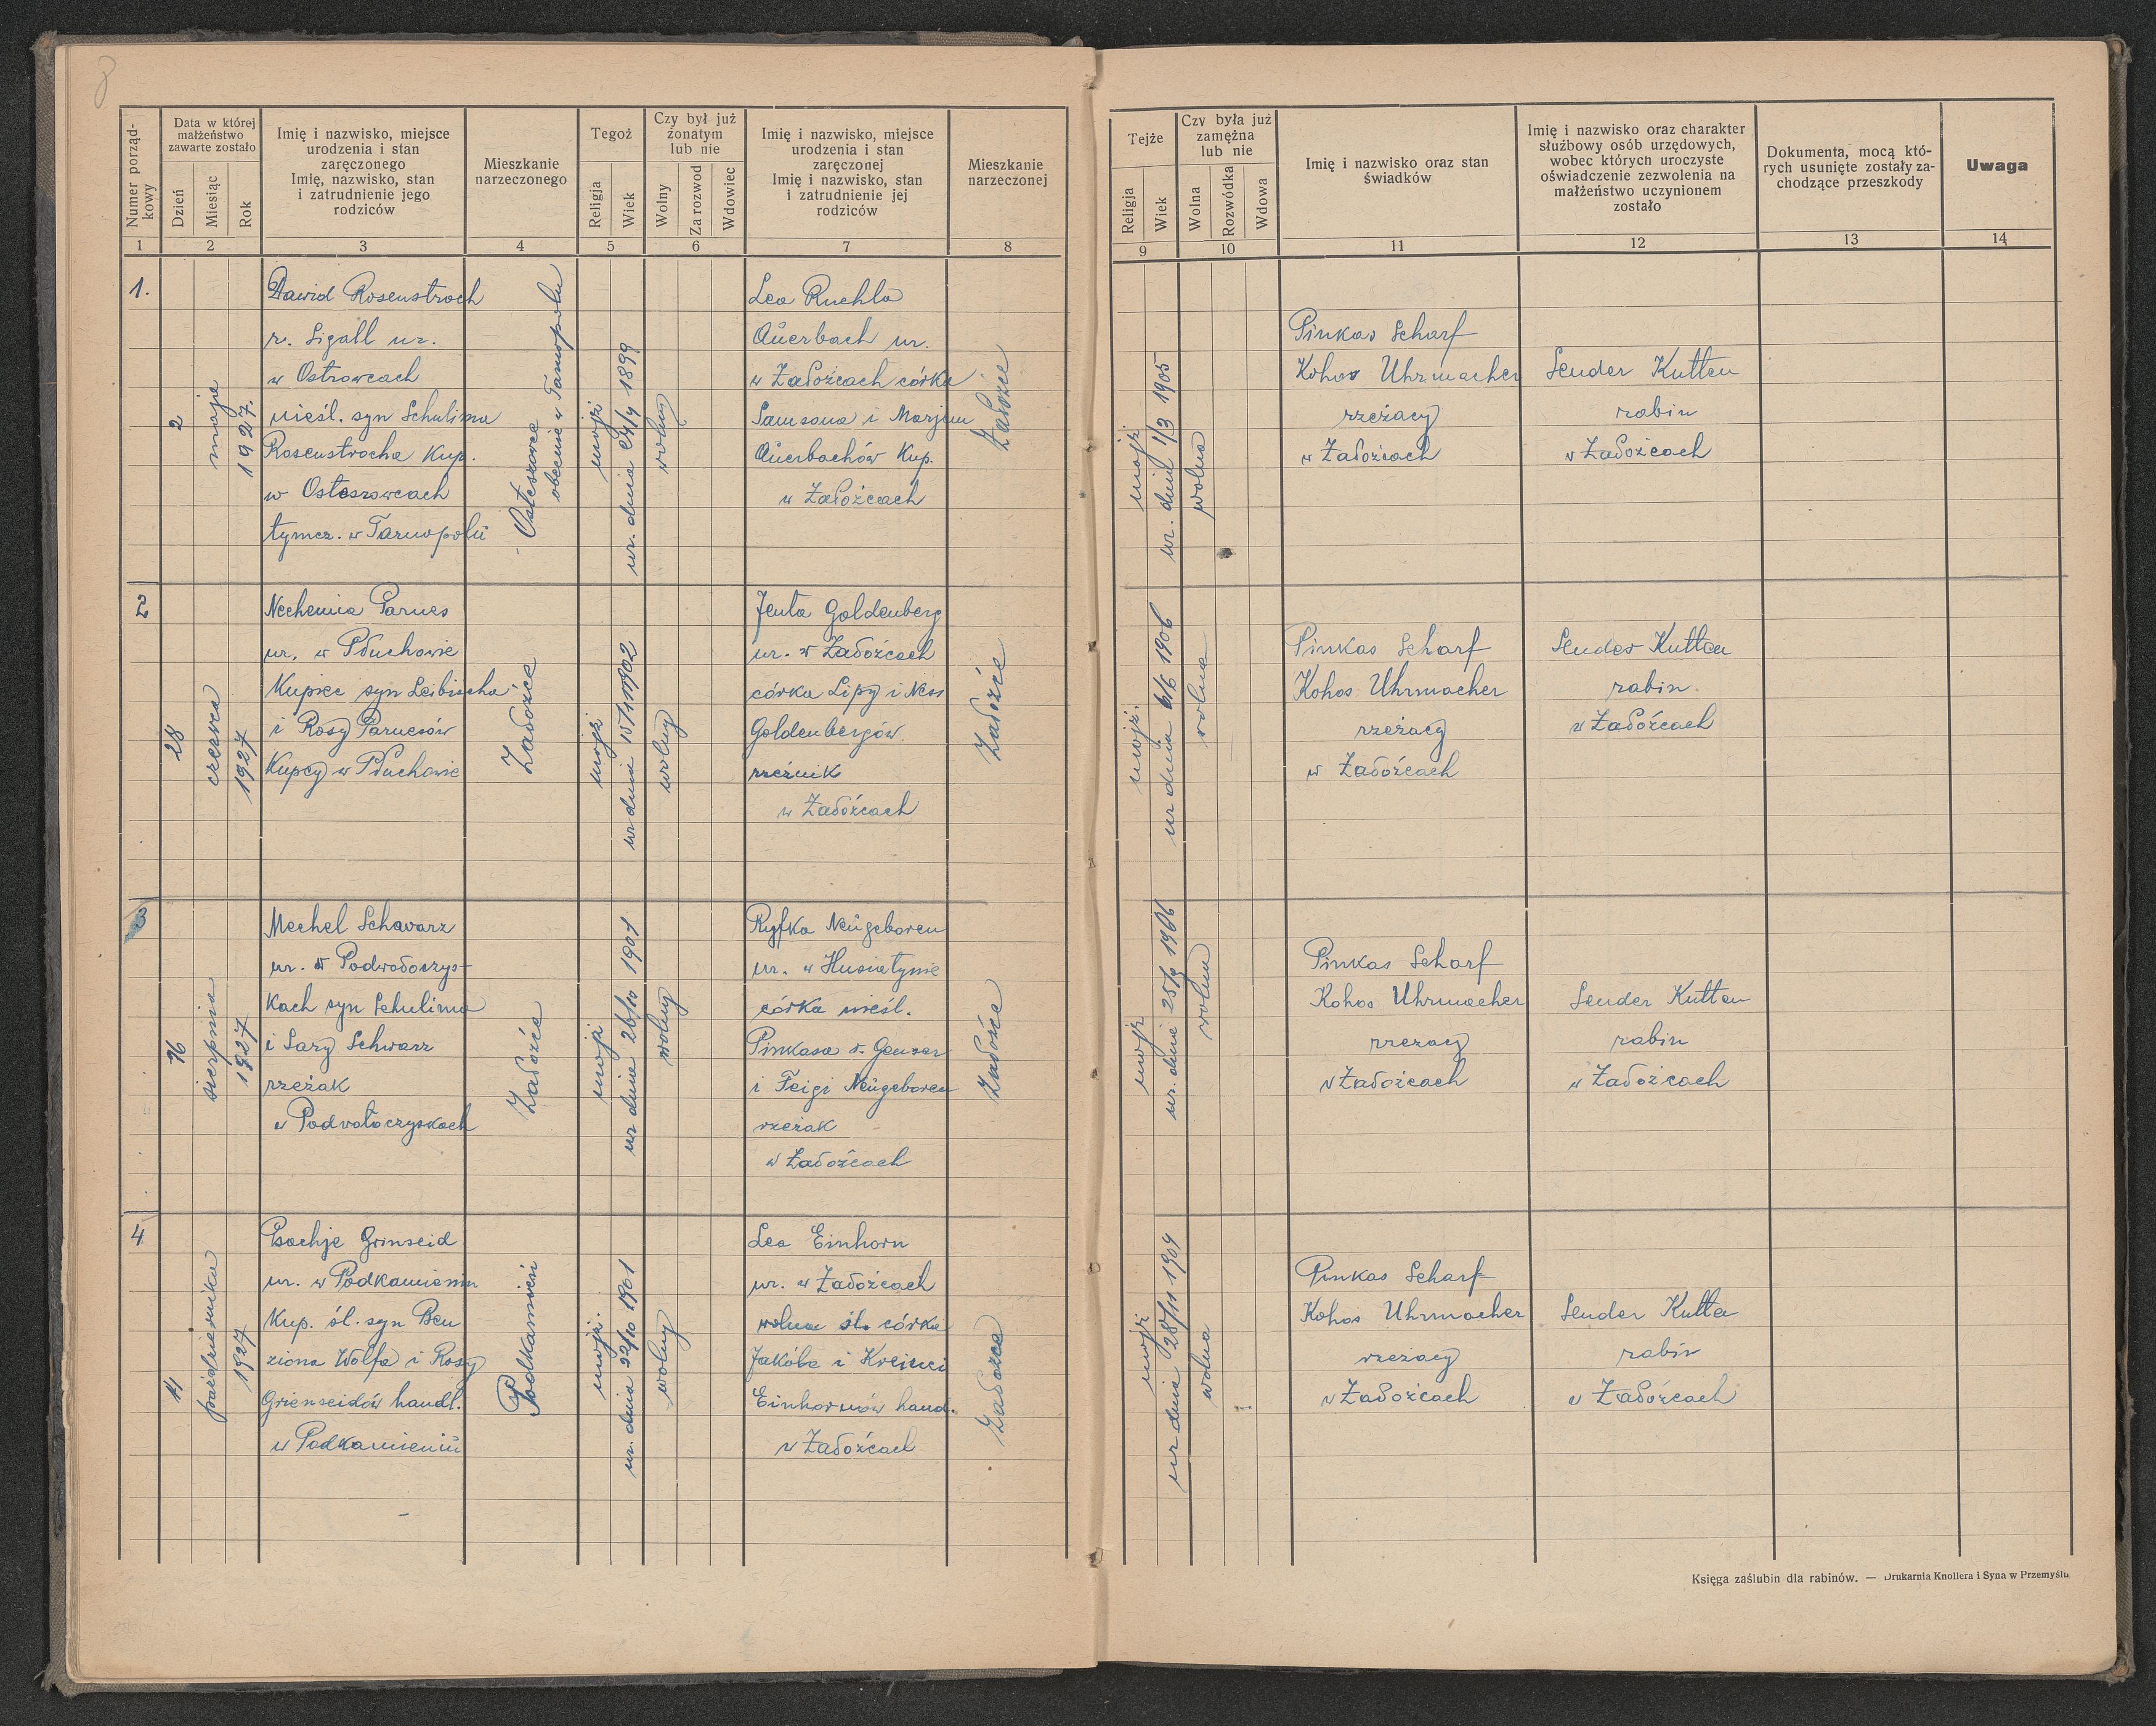 8
Numer porząd-
kowy
Data w której
małżeństwo
zawarte zostało
Dzień
Miesiąc
Rok
Imię i nazwisko, miejsce
urodzenia i stan
zaręczonego
Imię, nazwisko, stan
i zatrudnienie jego
rodziców
Mieszkanie
narzeczonego
Tegoż
Religja
Wiek
Czy był już
żonatym
lub nie
Wolny
Za rozwod
Wdowiec
Imię i nazwisko, miejsce
urodzenia i stan
zaręczonej
Imię i nazwisko, stan
i zatrudnienie jej
rodziców
Mieszkanie
narzeczonej
Tejże
Religja
Wiek
Czy była już
zamężna
lub nie
Wolna
Rozwódka
Wdowa
Imię i nazwisko oraz stan
świadków
Imię i nazwisko oraz charakter
służbowy osób urzędowych,
wobec których uroczyste
oświadczenie zezwolenia na
małżeństwo uczynionem
zostało
Dokumenta, mocą któ-
rych usunięte zostały za-
chodzące przeszkody
Uwaga
1 2 3 4 5 6 7 8 9 10 11 12 13 14
1.
2
maja
1927.
Dawid Rosenstroch
r. Sigall ur.
w Ostrowcach
nieśl. syn Schulima
Rosenstrocha Kup.
w Ostaszowcach
tymcz. w Tarnopolu
Ostaszowce
obecnie w Tarnopolu
mojż
ur. dnia 1899
wolny
Lea Ruchla
Auerbach ur.
w Załoźcach córka
Samsona i Marjem
Auerbachów Kup.
w Załoźcach
Załoźce
mojż
ur. dnia 1/3 1905
wolna
Pinkas Scharf
Kohos Uhrmacher
rzeżacy
w Załoźcach
Sender Kutten
rabin
w Załoźcach
2
28
czerwca
1927
Nechemia Parnes
ur. w Płuchowie
Kupiec syn Leibischa
i Rosy Parnesów
Kupcy w Płuchowie
Załoźce
mojż
ur dnia 15/11 1902
wolny
Jenta Goldenberg
ur. w Załoźcach
córka Lipy i Ness
Goldenbergów
rzeźnik
w Załoźcach
Załoźce
mojż.
ur dnia 1906
wolna
Pinkas Scharf
Kohos Uhrmacher
rzeżacy
w Załoźcach
Sender Kutten
rabin
w Załoźcach
3
16
sierpnia
1927
Mechel Schwarz
ur. w Podwołoczys-
kach syn Schulima
i Sary Schwarz
rzeżak
w Podwołoczyskach
Załoźce
mojż
ur dnia 26/10 1901
wolny
Ryfka Neugeboren
ur. w Husiatynie
córka nieśl.
Pinkasa r. Genser
i Feigi Neugeboren
rzeżak
w Załoźcach
Załoźce
mojż
ur. dnia 25/9 1906
wolna
Pinkas Scharf
Kohos Uhrmacher
rzeżacy
w Załoźcach
Sender Kutten
rabin
w Załoźcach
4
11
października
1927
Psachje Grinseid
ur. w Podkamieniu
Kup. śl. syn Ben
ziona Wolfa i Rosy
Grienseidów handl.
w Podkamieniu
Podkamień
mojż.
ur. dnia 22/10 1901
wolny
Lea Einhorn
ur. w Załoźcach
wolna śl. córka
Jakóba i Kreinci
Einhornów hand.
w Załoźcach
Załoźce
mojż
ur dnia 28/11 1904
wolna
Pinkas Scharf
Kohos Uhrmacher
rzeżacy
w Załoźcach
Sender Kutta
rabin
w Załoźcach
Księga zaślubin dla rabinów. — Drukarnia Knollera i Syna w Przemyślu